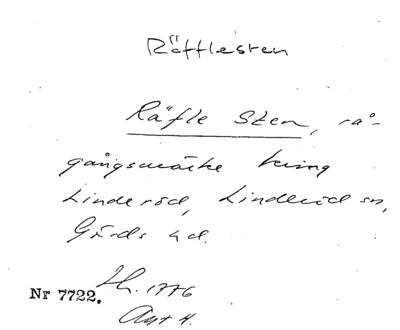 Räfflesten
Räfle Sten, rå-
gångsmärke kring
Linderöd, Linderöd sn,
Gärds hd.
Lh. 1776
Nr 7722.
Akt 4.